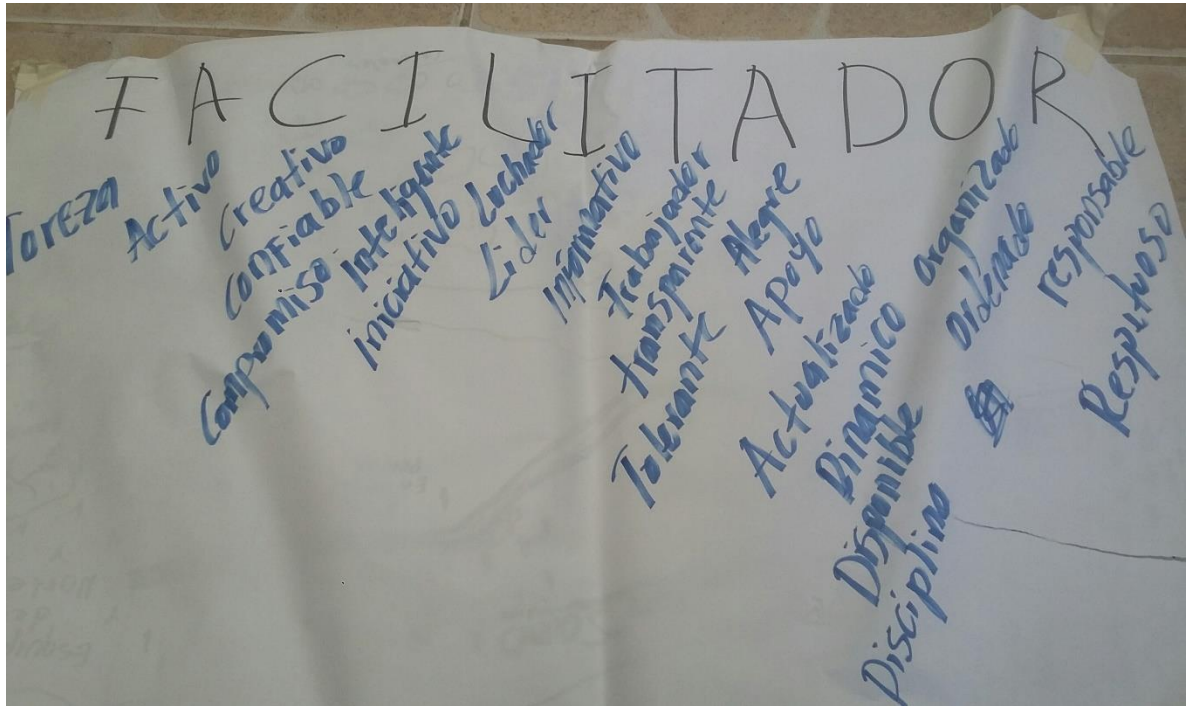 FACILITADOR
Activo
Creativo
Confiable
Compromiso
Inteligente
Iniciativo
Luchador
Lider
Informativo
Trabajador
transparente
Tolerante
Alegre
Apoyo
Actualizado
Dinamico
Disponible
Disciplina
organizado
Ordenado
responsable
Respetuoso